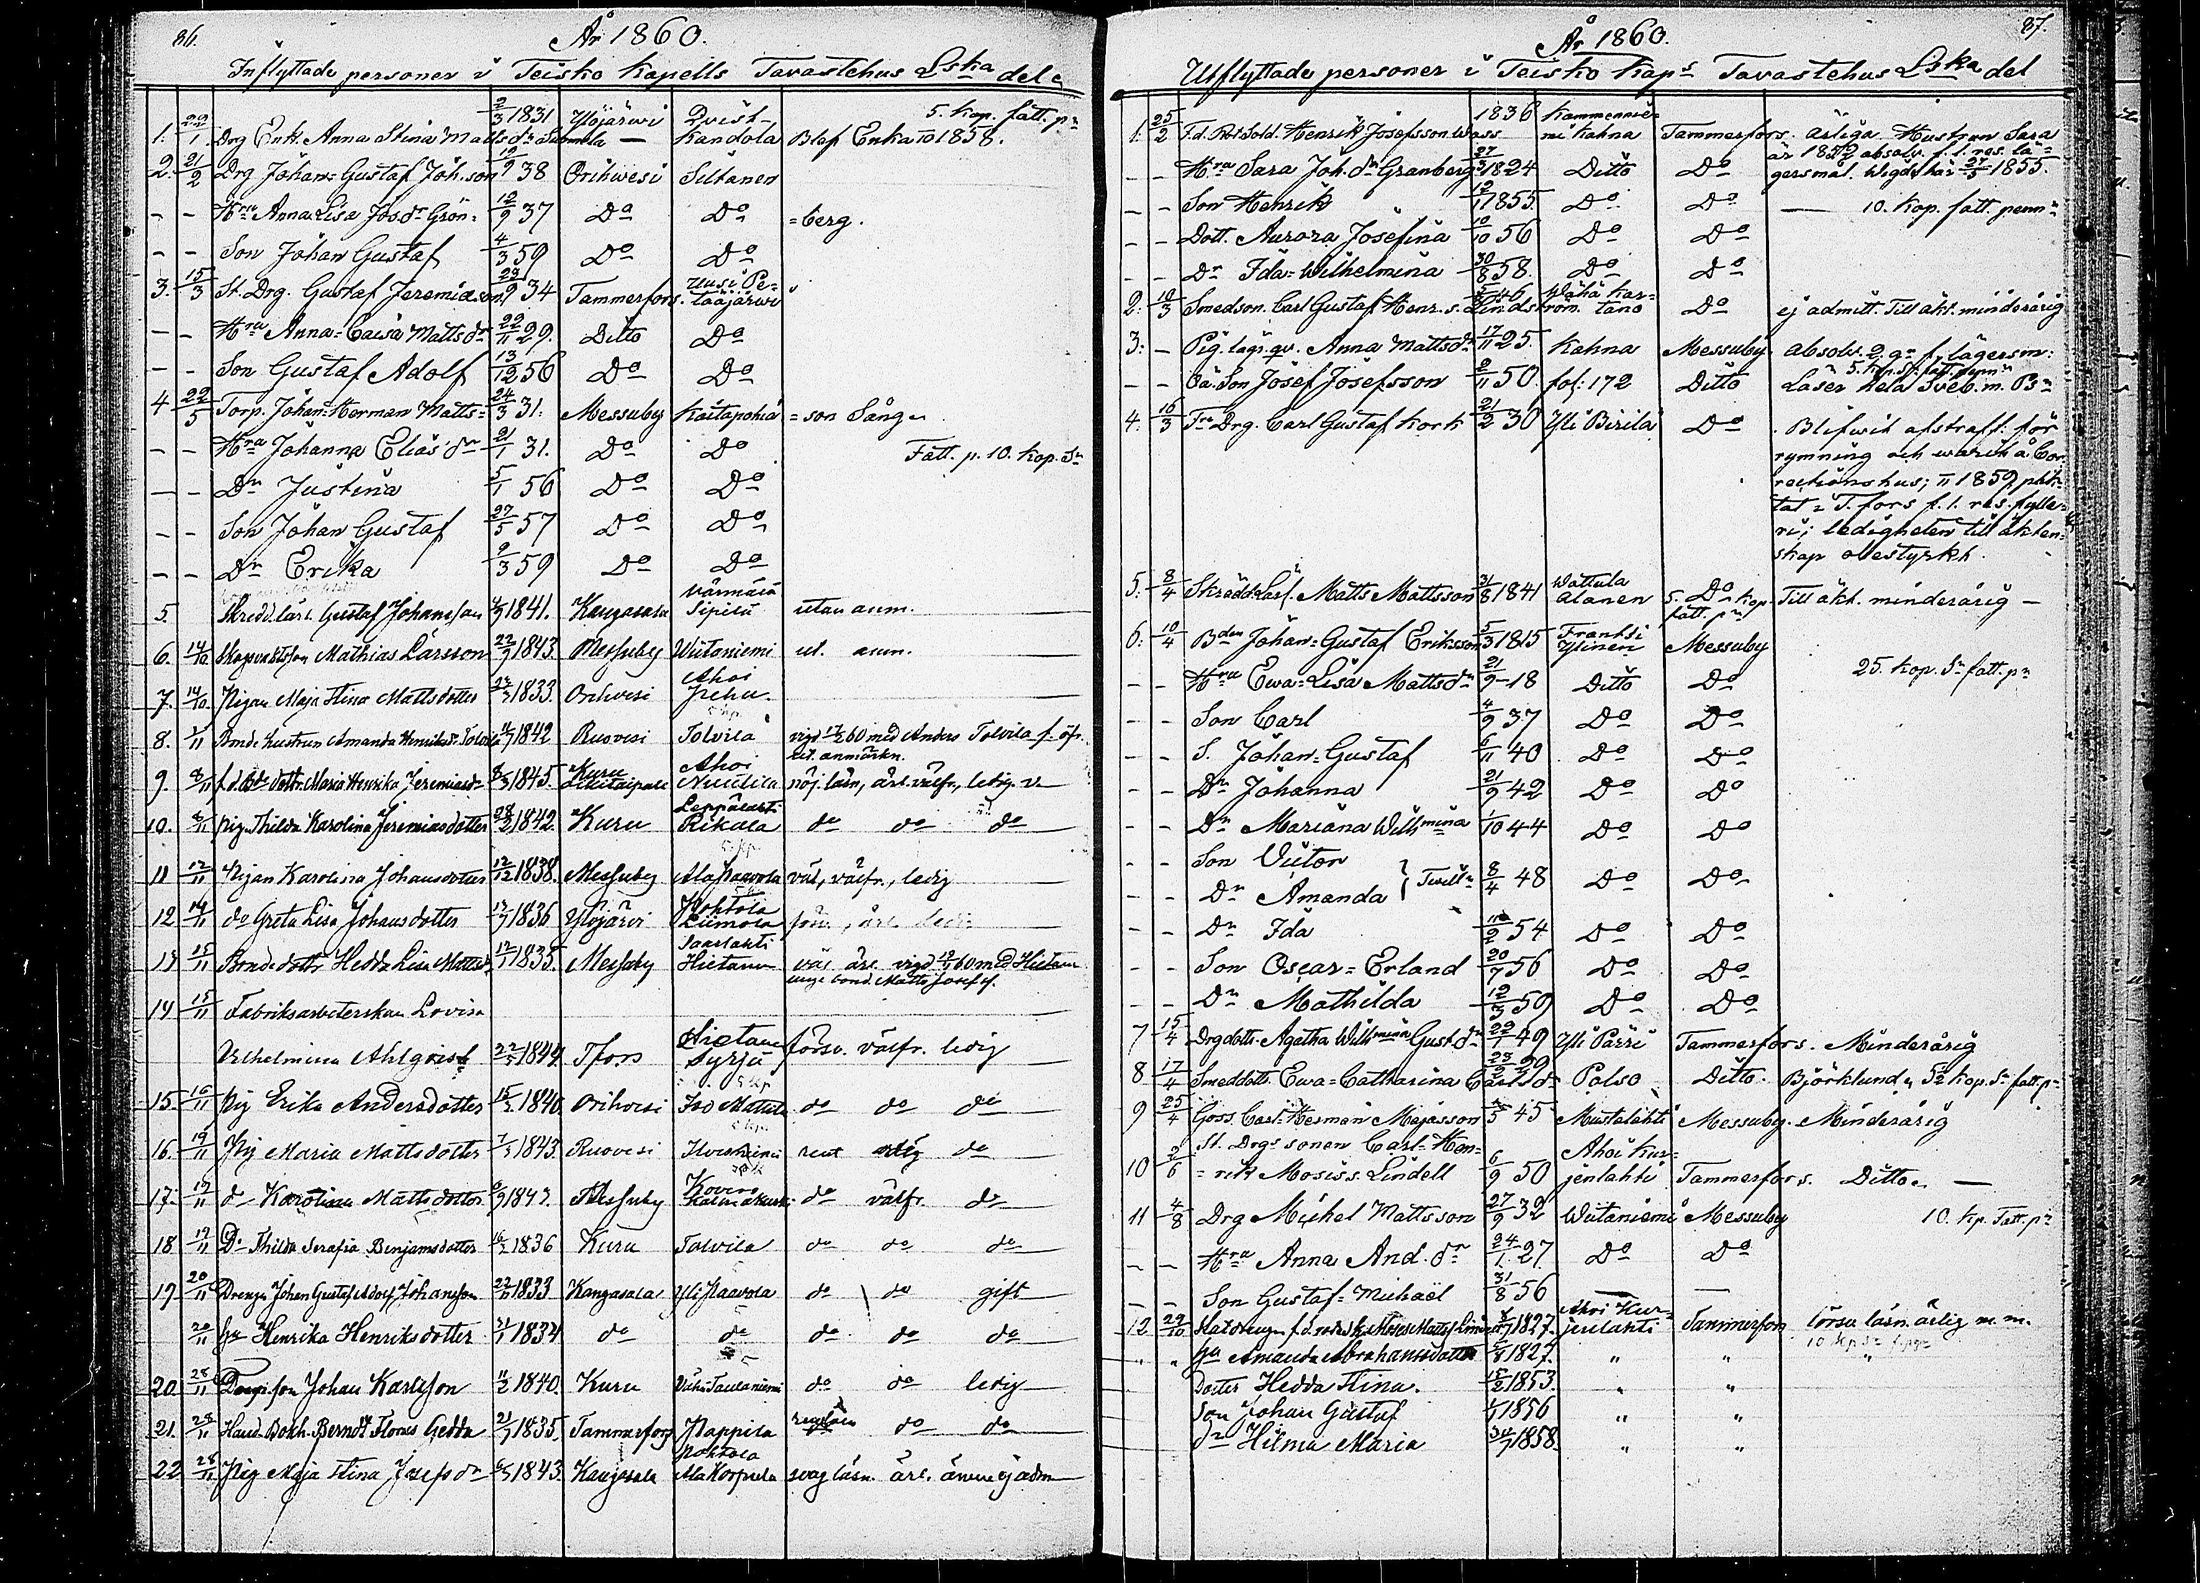 86.
År 1860.
Inflyttade personer i Teisko Kapells Tavastehus Lska del
1. 22/1 Drg Enk. Anna Stina Matts dr 2/3 1831 Ylöjärwi Qvist-Kandola Blef Enka 1858. 5. Kop. fatt. pn
2. 21/2 Drg Johan-Gustaf Joh.son 19/9 38 Orihwesi Siltanen
- - Hru Anna Lisa Jos.dr Grön- 12/9 37 Do Do =berg.
- - Son Johan Gustaf 4/3 59 Do Do
3. 15/3 St. Drg. Gustaf Jeremiasson 23/9 34 Tammerfors. Uusi Pe-tääjärwi
- - Hru Anna-Caisa Matts dr 22/11 29. Ditto Do
- - Son Gustaf Adolf 13/12 56 Do Do
4 22/5 Torp. Johan-Herman Matts- 24/3 31. Messuby Kaitapohia =son Sång
- - Hru Johanna Elias dr 21/1 31. Do Do Fatt. p. 10. Kop. Sr
- - Dr Justina 5/1 56 Do Do
- - Son Johan Gustaf 27/5 57 Do Do
- - Dr Erika 9/3 59 Do Do
5. Skredd.lärl. Gustaf Johansson 4/9 1841. Kangasala Värmälä Sipilä utan anm.
6. 14/10 Mathias Larsson 22/7 1843. Messuby Wiitaniemi ut. anm.
7. 14/10. Pigan Maja Stina Mattsdotter 1833. Orihvesi Ahoi
8. 1/11 Bonde hustrun Amanda Henriksdr Tolvila 1842 Ruovesi Tolvila vigd 60 med Anders Tolvila
ut. anmärkn.
9. 8/11 f.d. Bde dottr. Maria Henrika Jeremiasdr 1845. Kuru Ahoi nöj. läsn, ärl. välfr., ledig
10. 8/11 Pig. Thilda Karolina Jeremiasdotter 28/2 1842. Kuru Leppälahti Rikala do do do
11 12/11 Pigan Karolina Johansdotter 12/12 1838. Messuby Ala Paavola väl, välfr., ledig
12 14/11 do Greta Lisa Johansdotter 1836 Ylöjärvi Pohtola Liimola
13 15/11 Bonde dottr Hedda Lisa Mattsdr 1835. Messuby Paarlahti Hietanen väl ärl. vigd 60 med Hietanen
unge bond. Matts Josefss.
14 15/11 Fabriksarbeterskan Lovisa
Vilhelmina Ahlqvist 1844. Tfors Hietanen Syrjä försv. välfr. ledig
15. 16/11 Pig Erika Andersdotter 1840. Orihvesi Iso Mattila do do do
16. 19/11 Pig Maria Mattsdotter 1843. Ruovesi rent do
17. 19/11 do Karolina Mattsdotter Messuby Kovero do välfr. do
18 19/11 Do Thilda Serafia Benjamsdotter 1836 Kuru Tolvila do do do
19 20/11 Drengen Johan Gustaf Adolf Johansson 1833 Kangasala Yli Paavola do do gift
20/11 hu Henrika Henriksdotter 1834 do do do do do
20 28/11 Drengson Johan Karlsson 1840. Kuru do do ledig
21. 28/11 Hand. Bokh. Berndt Gedda 21/7 1835. Tammerfors Pappila do do
22 28/11 Pig Maja Stina Josefs dr 1843. Kangasala Pohtola Ala Korpula svag läsn. ärl. ännu ej adm
87.
År 1860.
Utflyttade personer i Teisko Kaps Tavastehus Lska del
1. 25/2 F.d. Rot Sold. Henrik Josefsson Wass 1836 Kammennie-mi Kahna Tammerfors. ärliga. Hustrun Sara
är 1852 absolv. f. 1. res. lä-
- - Hru Sara Joh.dr Granberg 27/3 1824 Ditto Do gersmål. Wigd här 27/5 1855.
- - Son Henrik 12/7 1855. Do Do — 10. Kop. fatt. penn
- - Dott. Aurora Josefina 10/10 56 Do Do
- - Dr Ida-Wilhelmina 30/8 58. Do Do
2. 10/3 Smedson. Carl Gustaf Henr. s. Lindström. 46 Wähä Kar-tano Do ej admitt. Till äkt. minderårig
3. - Pig. läg. qv. Anna Mattsdr 17/11 25. Kahna Messuby absolv. 2 gr f. lägersm:
5. Kop. Sr fatt. penn
- - Oä. Son Josef Josefsson 2/11 50. fol: 172 Ditto Läser hela Sveb. m. Ps
4. 16/3 Fr Drg. Carl Gustaf Kork 21/2 30 Yli Birilä Do Blifwit afstraff: för
rymning och warit å Cor-
rectionshus; 1859 plik-
tat i T.fors f. 1. res. fylle-
ri; ledigheten till äkten-
skap obestyrkt.
5. 8/4 Skrädd. Lärl. Matts Mattsson 31/8 1841 Wattula Alanen Do 5. Kop. fatt. pn Till äkt. minderårig —
6. 10/4 Bden Johan-Gustaf Eriksson 5/3 1815 Frantsi Ylinen Messuby
- - Hru Ewa-Lisa Mattsdr 21/9 -18 Ditto Do 25. Kop. Sr fatt. pn
- - Son Carl 4/9 37 Do Do
- - S. Johan-Gustaf 6/11 40 Do Do
- - Dr Johanna 21/9 42 Do Do
- - Dr Mariana Wilhmina 1/10 44 Do Do
- - Son Victor
- - Dr Amanda } Twill 8/4 48 Do Do
- - Dr Ida 10/2 54 Do Do
- - Son Oscar-Erland 20/7 56 Do Do
- - Dr Mathilda 12/3 59 Do Do
7 15/4 Drgdottr. Agatha Wilhmina Gust.dr 22/1 49 Yli Pärri Tammerfors. Minderårig
8 17/4 Smeddottr. Ewa-Catharina Carlsdr 29 Polso Ditto. Björklund 5 Kop. Sr fatt. pn
9 25/4 Goss. Carl-Herman Majasson 45 Mustalahti Messuby. Minderårig
10 2/6 St. Drgs sonen Carl-Hen-
=rik Mosis s. Lindell 6/9 50 Ahoi Kur-jenlahti Tammerfors. Ditto. —
11 4/8 Drg Michel Mattsson 27/9 32 Wiitaniemi Messuby 10. Kp. Fatt. pn
- - Hru Anna And. dr 24/1. 27. Do Do
- - Son Gustaf-Michaël 31/8 56
12 29/10 Statdrengen f.d. Moses Mattss 1827. Ahoi Kur-jenlahti Tammerfors läsn. ärlig m. m.
" " hu Amanda Abrahamsdotter 1827. " " "
Dotter Hedda Stina. 1853. " "
Son Johan Gustaf 1856 " "
dr Hilma Maria 1858. " "